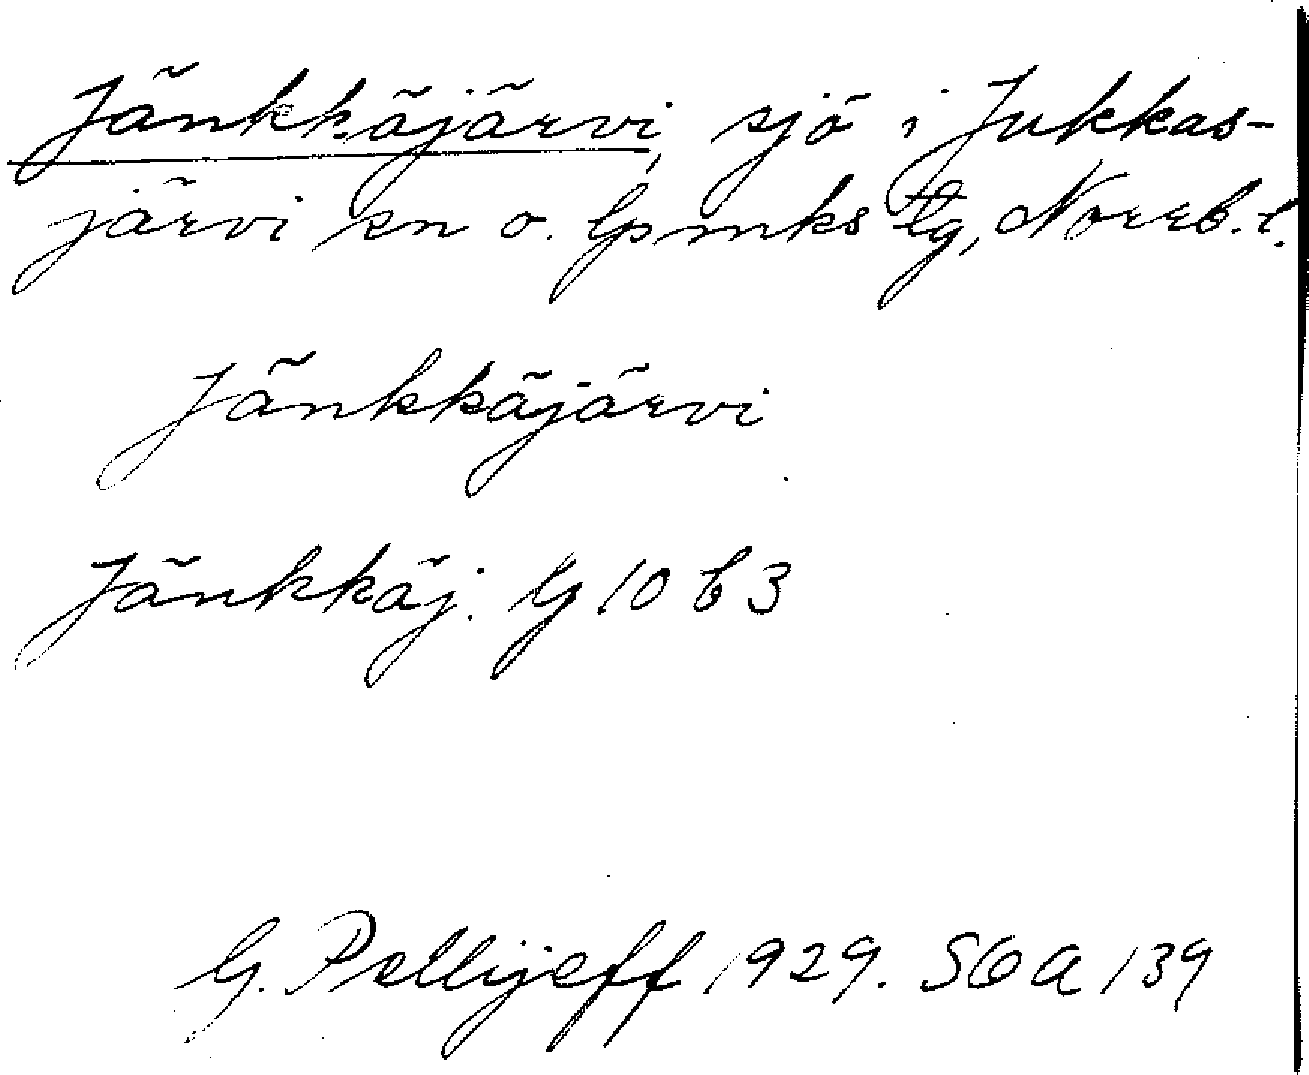 Jänkkäjärvi, sjö i Jukkas-
järvi sn o. lpmks tg, Norrb. l.
Jänkkäjärvi
Jänkkäj. G 10 b 3
G. Pellijeff 1929. SOA 139